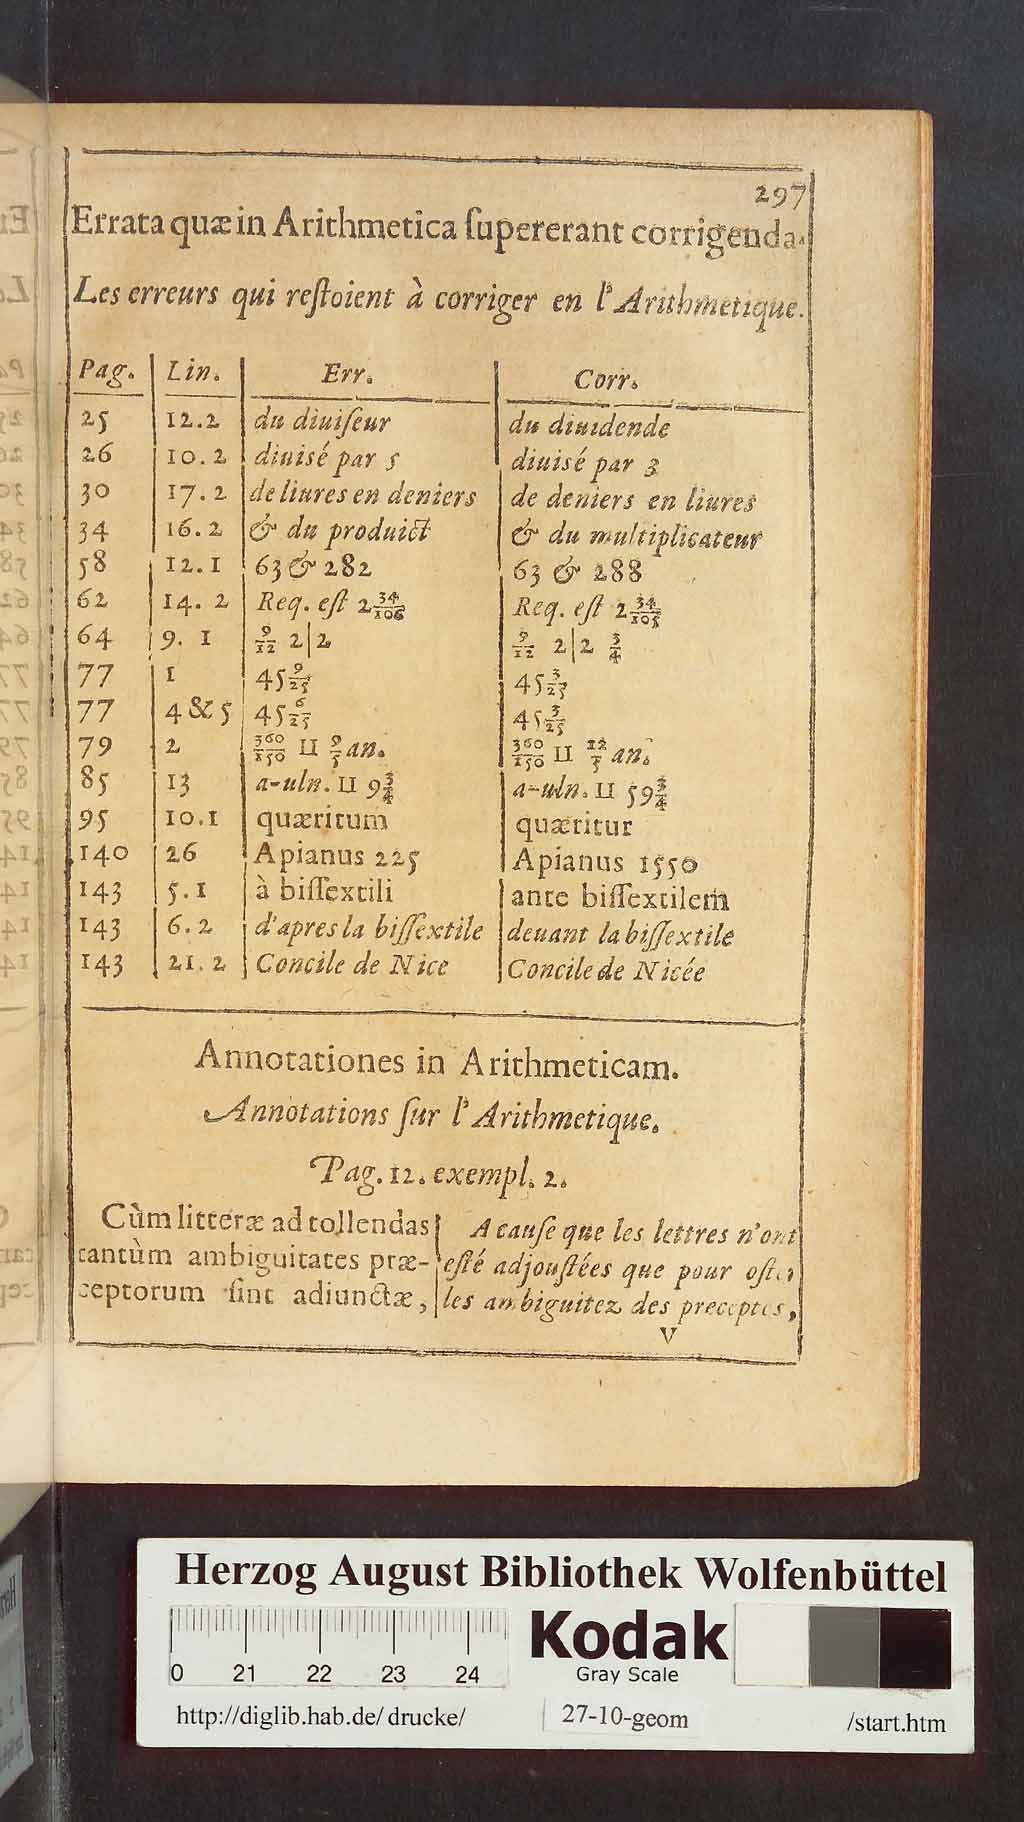 297
Errata quæ in Arithmetica ſupererant corrigenda.
Les erreurs qui reſtoient à corriger en l'Arithmetique.
Pag. Lin. Err. Corr.
25 12.2 du diuiſeur du diuidende
26 10.2 diuisé par 5 diuisé par 3
30 17.2 de liures en deniers de deniers en liures
34 16.2 & du produict & du multiplicateur
58 12.1 63 & 282 63 & 288
62 14.2 Req. eſt 2 34/106 Req. eſt 2 34/105
64 9.1 9/12 2|2 9/12 2|2 3/4
77 1 45 9/25 45 3/25
77 4 & 5 45 6/25 45 3/25
79 2 360/150 II 9/5 an. 360/150 II 12/5 an.
85 13 a-uln. II 9 3/4 a-uln. II 59 3/4
95 10.1 quæritum quæritur
140 26 Apianus 225 Apianus 1550
143 5.1 à biſſextili ante biſſextilem
143 6.2 d'apres la biſſextile deuant la biſſextile
143 21.2 Concile de Nice Concile de Nicée
Annotationes in Arithmeticam.
Annotations ſur l'Arithmetique.
Pag. 12. exempl. 2.
Cùm litteræ ad tollendas
tantùm ambiguitates præ-
ceptorum ſint adiunctæ,
A cauſe que les lettres n'ont
eſté adjouſtées que pour oſter
les ambiguitez des preceptes,
V
Herzog August Bibliothek Wolfenbüttel
0 21 22 23 24
Kodak
Gray Scale
http://diglib.hab.de/drucke/ 27-10-geom /start.htm